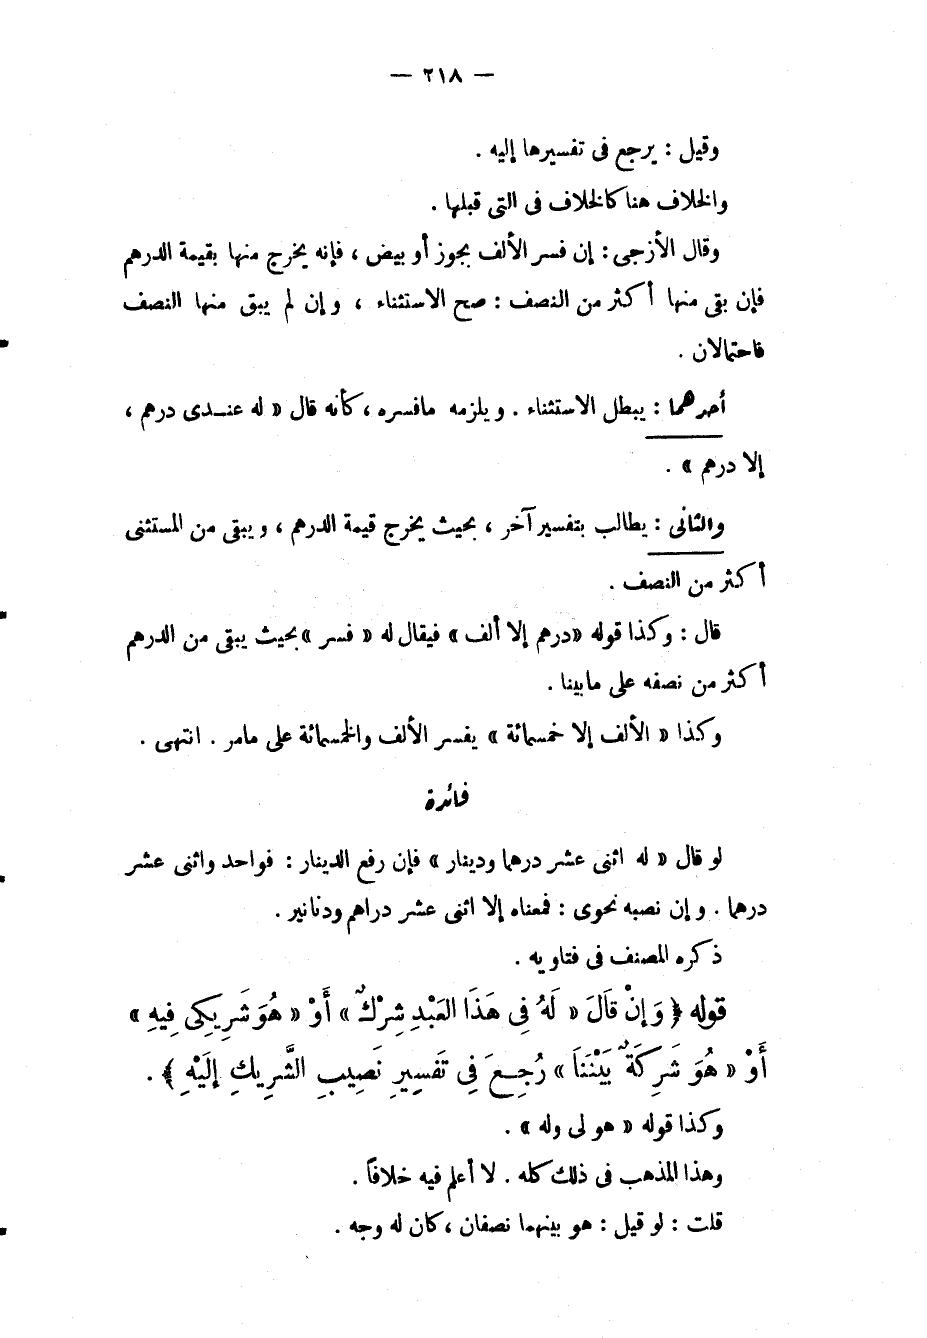 — ٢١٨ —
وقيل : يرجع فى تفسيرها إليه .
والخلاف هنا كالخلاف فى التى قبلها .
وقال الأزجى : إن فسر الألف بجوز أو بيض ، فإنه يخرج منها بقيمة الدرهم
فإن بقى منها أكثر من النصف : صح الاستثناء ، وإن لم يبق منها النصف
فاحتمالان .
أحدهما : يبطل الاستثناء . ويلزمه مافسره ، كأنه قال « له عنـدى درهم ،
إلا درهم » .
والثانى : يطالب بتفسير آخر ، بحيث يخرج قيمة الدرهم ، ويبقى من المستثنى
أكثر من النصف .
قال : وكذا قوله «درهم إلا ألف» فيقال له « فسر » بحيث يبقى من الدرهم
أكثر من نصفه على مابينا .
وكذا « الألف إلا خمسمائة » يفسر الألف والخمسمائة على مامر . انتهى .
فائدة
لو قال « له اثنى عشر درهما ودينار » فإن رفع الدينار : فواحد واثنى عشر
درهما . وإن نصبه نحوى : فمعناه إلا اثنى عشر دراهم ودنانير .
ذكره المصنف فى فتاويه .
قوله ﴿ وَإِنْ قَالَ « لَهُ فِى هَذَا العَبْدِ شِرْكٌ » أَوْ « هُوَ شَرِيكِى فِيهِ »
أَوْ « هُوَ شَرِكَةٌ بَيْنَنَا » رُجِـعَ فِى تَفْسِيرِ نَصِيبِ الشَّرِيكِ إِلَيْهِ ﴾ .
وكذا قوله « هو لى وله » .
وهذا المذهب فى ذلك كله . لا أعلم فيه خلافاً .
قلت : لو قيل : هو بينهما نصفان ، كان له وجه .